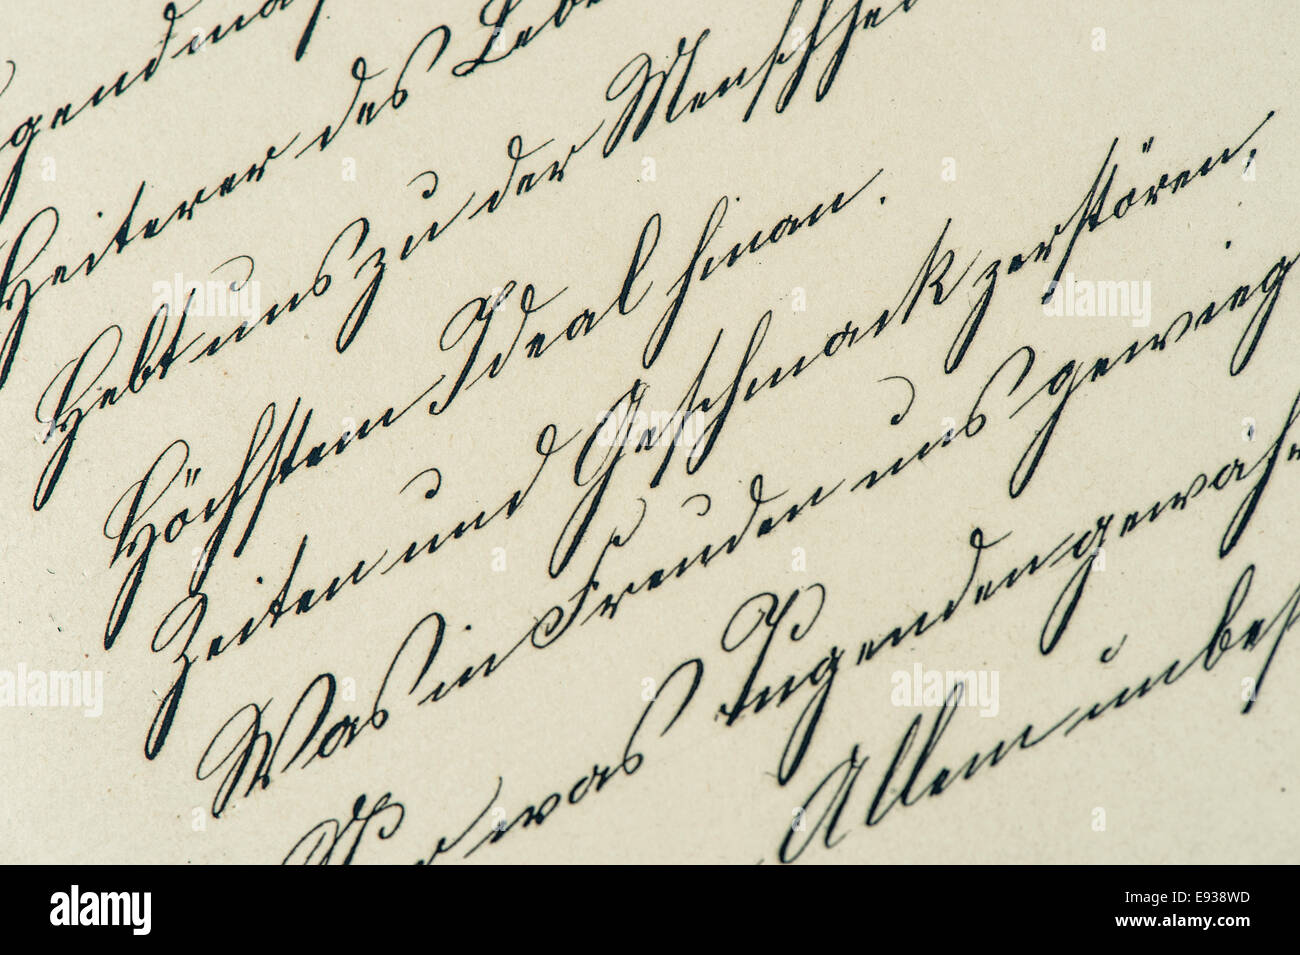 gendmal
Heiterer des Lebe
Hebt uns zu der Menschheit
Höchstem Ideal hinan.
Zeiten und Geschmack zerstören,
Was in Freuden uns gewieg
was Tugenden gewäh
Allem unbes
alamy
E938WD
www.alamy.com